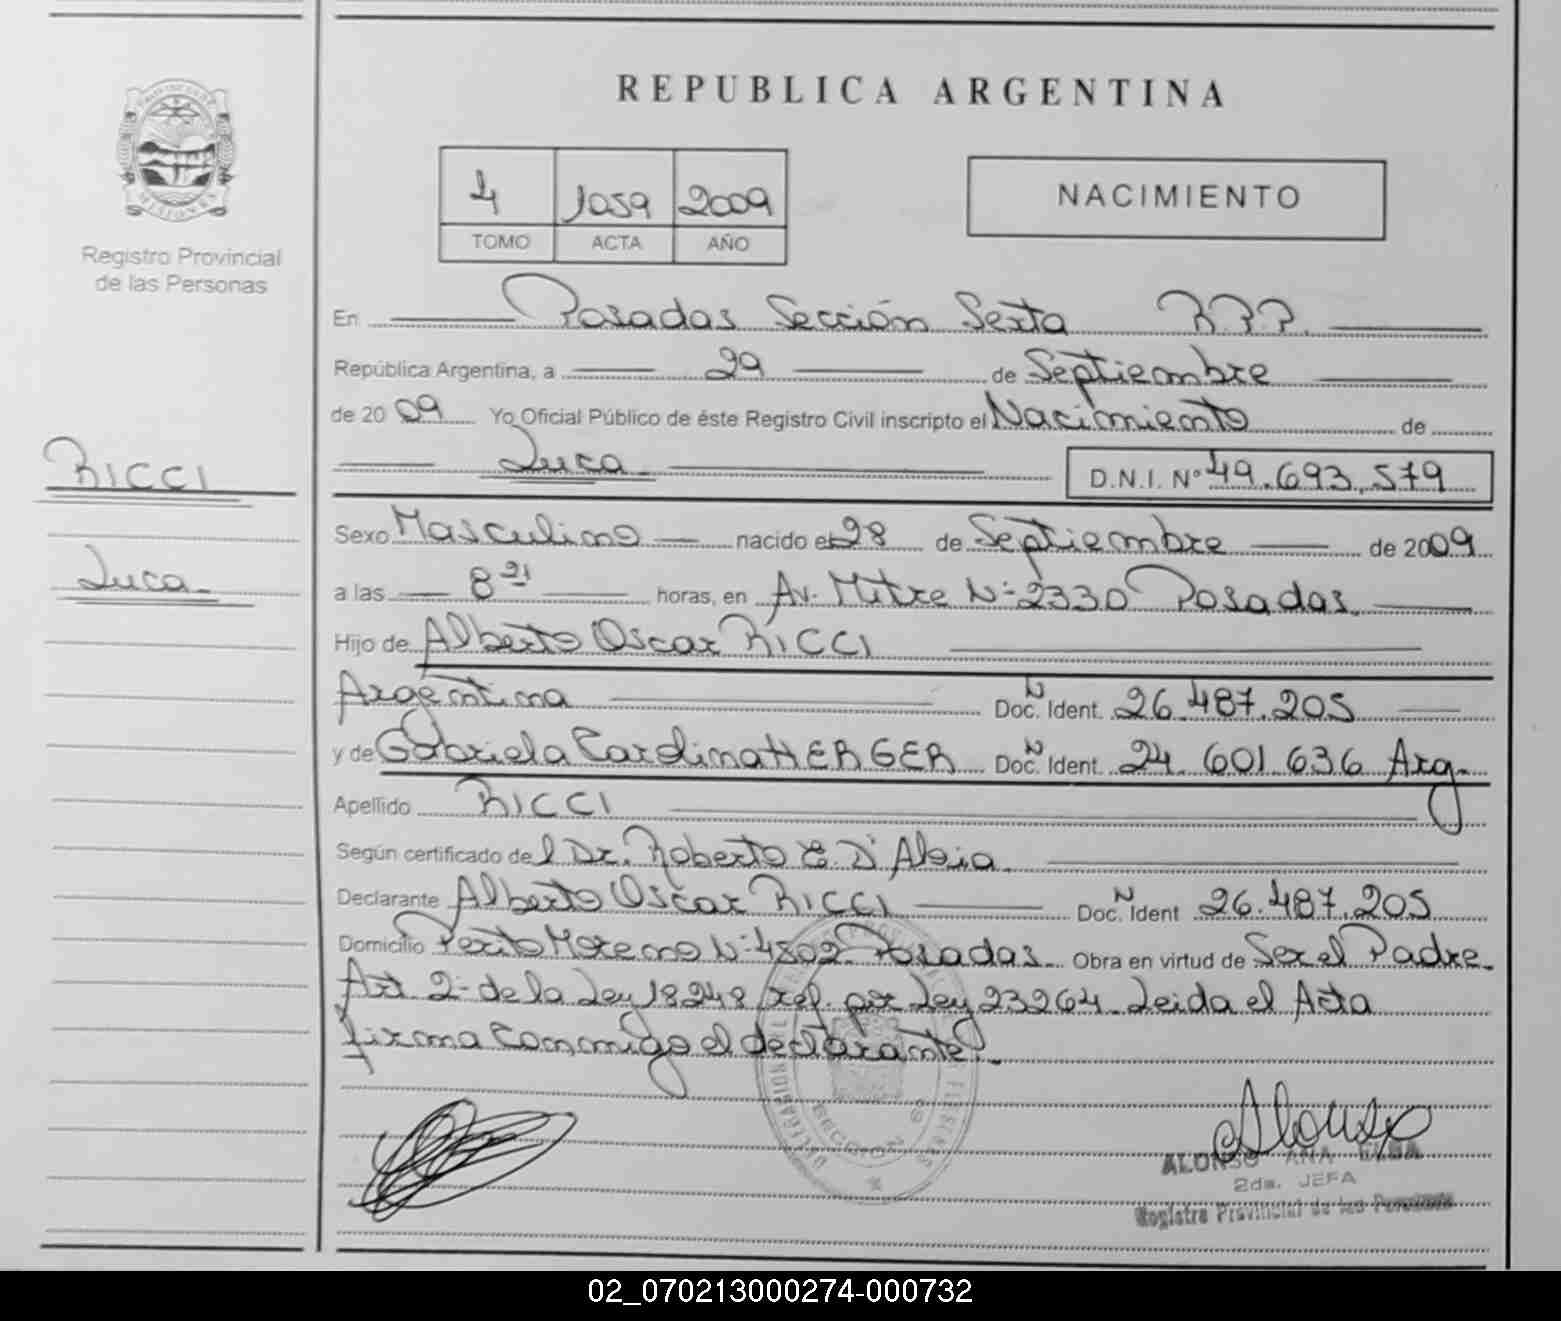 REPUBLICA ARGENTINA
MISIONES
Registro Provincial
de las Personas
4 1059 2009
TOMO ACTA AÑO
NACIMIENTO
En Posadas Sección Sexta R.P.P.
República Argentina, a 29 de Septiembre
de 2009 Yo Oficial Público de éste Registro Civil inscripto el Nacimiento de
Luca D.N.I. Nº 49.693.579
RICCI
Luca
Sexo Masculino nacido el 28 de Septiembre de 2009
a las 8 21 horas, en Av. Mitre Nº 2330 Posadas.
Hijo de Alberto Oscar RICCI
Argentina Doc. N Ident. 26.487.205
y de Gabriela Cardina HERGER Doc. N Ident. 24.601.636 Arg.
Apellido RICCI
Según certificado del Dr. Roberto E. D'Aloia.
Declarante Alberto Oscar RICCI Doc. N Ident 26.487.205
Domicilio Perito Moreno Nº 4802 Posadas. Obra en virtud de Ser el Padre.
Art. 2º de la Ley 18248 ref. por Ley 23264. Leida el Acta
firma conmigo el declarante.
SECCION 6
Alonso
ALONSO ANA ELBA
2da. JEFA
Registro Provincial de las Personas
02_070213000274-000732